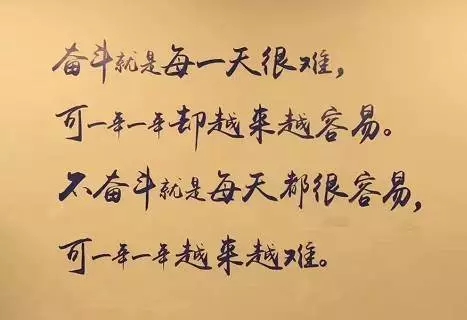 奋斗就是每一天很难，
可一年一年却越来越容易。
不奋斗就是每天都很容易，
可一年一年越来越难。